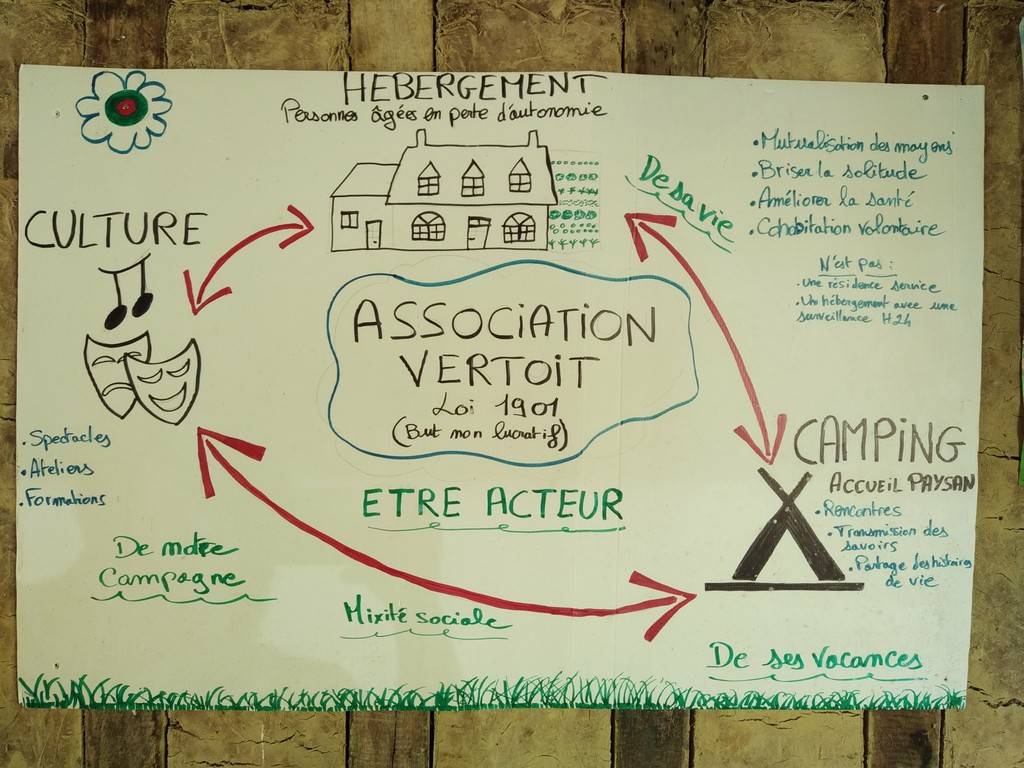 HEBERGEMENT
Personnes âgées en perte d'autonomie
De sa vie
• Mutualisation des moyens
• Briser la solitude
• Améliorer la santé
• Cohabitation volontaire
N'est pas :
• Une résidence service
• Un hébergement avec une
surveillance H24
CULTURE
• Spectacles
• Ateliers
• Formations
ASSOCIATION
VERTOIT
Loi 1901
(But non lucratif)
ETRE ACTEUR
CAMPING
ACCUEIL PAYSAN
• Rencontres
• Transmission des
savoirs
• Partage des histoires
de vie
De notre
Campagne
Mixité sociale
De ses vacances